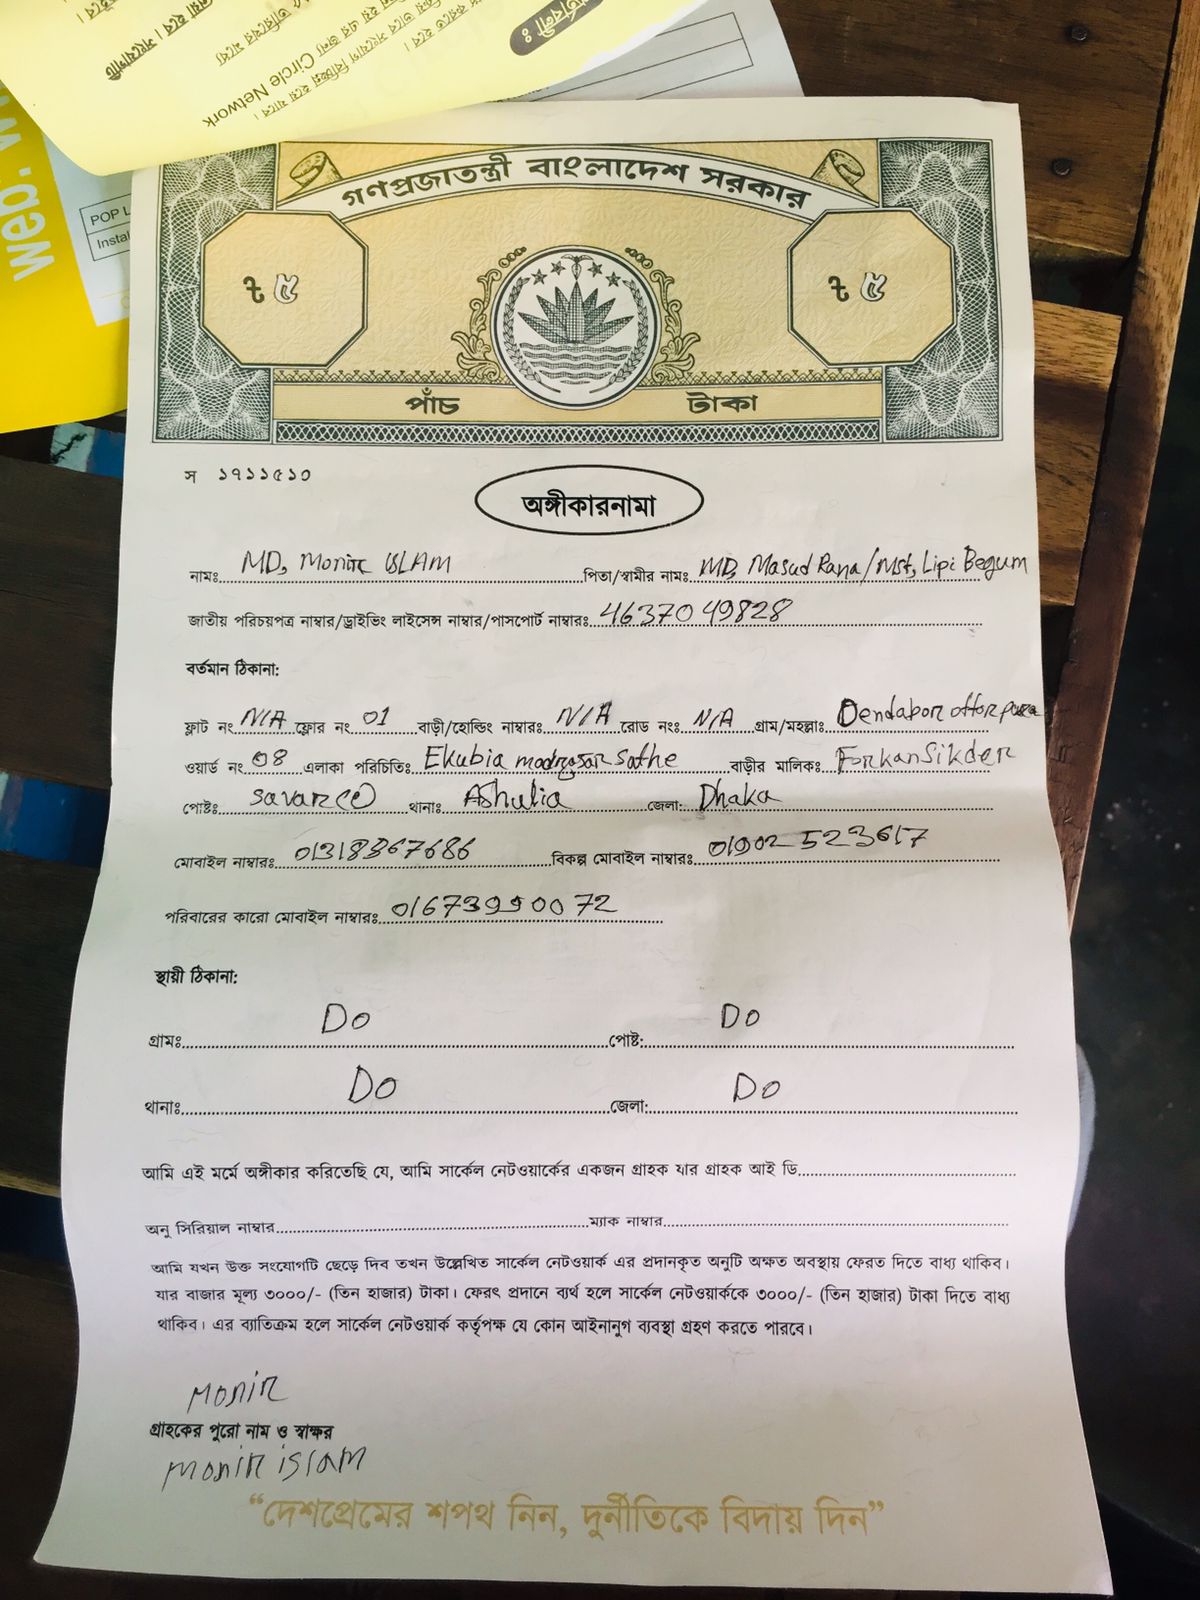 web: w
POP L
Instal
Circle Network
গণপ্রজাতন্ত্রী বাংলাদেশ সরকার
৳ ৫ ৳ ৫
পাঁচ টাকা
স ১৭১১৫১০
অঙ্গীকারনামা
নামঃ MD, Monir ISLAM পিতা/স্বামীর নামঃ MD, Masud Rana/Mst, Lipi Begum
জাতীয় পরিচয়পত্র নাম্বার/ড্রাইভিং লাইসেন্স নাম্বার/পাসপোর্ট নাম্বারঃ 4637049828
বর্তমান ঠিকানা:
ফ্লাট নং N/A ফ্লোর নং 01 বাড়ী/হোল্ডিং নাম্বারঃ N/A রোড নংঃ N/A গ্রাম/মহল্লাঃ Dendabor ottorpara
ওয়ার্ড নং 08 এলাকা পরিচিতিঃ Ekubia sathe বাড়ীর মালিকঃ Forkan Sikder
পোষ্টঃ savar থানাঃ Ashulia জেলা: Dhaka
মোবাইল নাম্বারঃ 01318367686 বিকল্প মোবাইল নাম্বারঃ 01902523617
পরিবারের কারো মোবাইল নাম্বারঃ 01673990072
স্থায়ী ঠিকানা:
গ্রামঃ Do পোষ্ট: Do
থানাঃ Do জেলা: Do
আমি এই মর্মে অঙ্গীকার করিতেছি যে, আমি সার্কেল নেটওয়ার্কের একজন গ্রাহক যার গ্রাহক আই ডি
অনু সিরিয়াল নাম্বার ম্যাক নাম্বার
আমি যখন উক্ত সংযোগটি ছেড়ে দিব তখন উল্লেখিত সার্কেল নেটওয়ার্ক এর প্রদানকৃত অনুটি অক্ষত অবস্থায় ফেরত দিতে বাধ্য থাকিব।
যার বাজার মূল্য ৩০০০/- (তিন হাজার) টাকা। ফেরৎ প্রদানে ব্যর্থ হলে সার্কেল নেটওয়ার্ককে ৩০০০/- (তিন হাজার) টাকা দিতে বাধ্য
থাকিব। এর ব্যাতিক্রম হলে সার্কেল নেটওয়ার্ক কর্তৃপক্ষ যে কোন আইনানুগ ব্যবস্থা গ্রহণ করতে পারবে।
Monir
গ্রাহকের পুরো নাম ও স্বাক্ষর
Monir islam
“দেশপ্রেমের শপথ নিন, দুর্নীতিকে বিদায় দিন”